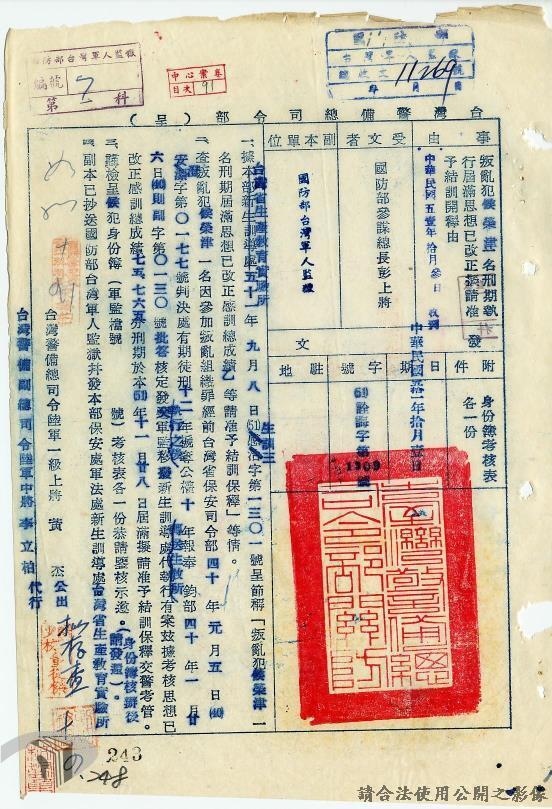 國防部台灣軍人監獄
編號
第 科
中心案卷
目次 91
11269
台灣警備總司令部（呈）
事由
叛亂犯侯榮津一名刑期執
行屆滿思想已改正擬請准
予結訓開釋由
中華民國五壹年拾月參日 收到
受文者
國防部參謀總長彭上將
副本單位
國防部台灣軍人監獄
發文
附件
身份簿考核表
各一份
日期
中華民國五十一年拾月壹日
字號
(51)詮誨字第1309號
駐地
一、據本部新生訓導處
台灣省生產教育實驗所
五十一年九月八日(51)感治字第一三〇一號呈節稱「叛亂犯侯榮津一
名刑期屆滿思想已改正感訓總成績乙等請准予結訓保釋」等情。
二、查叛亂犯侯榮津一名因參加叛亂組織罪經前台灣省保安司令部四十年元月五日(40)
安潔字第〇一七七號判決處有期徒刑十二年褫奪公權十年報奉 鈞部四十年一月廿
六日(40)則副字第〇一三〇號批答核定發交軍監移新生訓導處代執行有案茲據考核思想已
改正感訓總成績七五、七六五分刑期於本(51)年十一月廿八日屆滿擬請准予結訓保釋交警考管。
三、謹檢呈侯犯身份簿（軍監檔號 號）考核表各一份恭請鑒核示遵。（身份簿核辦後
請發還）。
四、副本已抄送國防部台灣軍人監獄并發本部保安處軍法處新生訓導處台灣省生產教育實驗所
台灣警備總司令陸軍一級上將 黃 杰 公出
台灣警備副總司令陸軍中將 李立柏 代行
台灣警備總司令部關防
243
248
請合法使用公開之影像